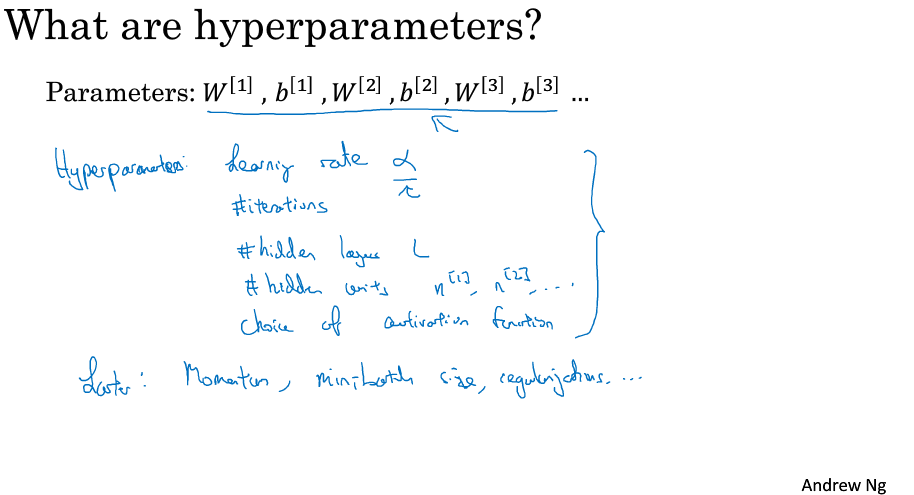 What are hyperparameters?
Parameters: W^[1] , b^[1] , W^[2] , b^[2] , W^[3] , b^[3] ...
Hyperparameters: Learning rate α
#iterations
#hidden layers L
#hidden units n^[1], n^[2], ....
Choice of activation function
Later: Momentum, mini-batch size, regularizations. ...
Andrew Ng